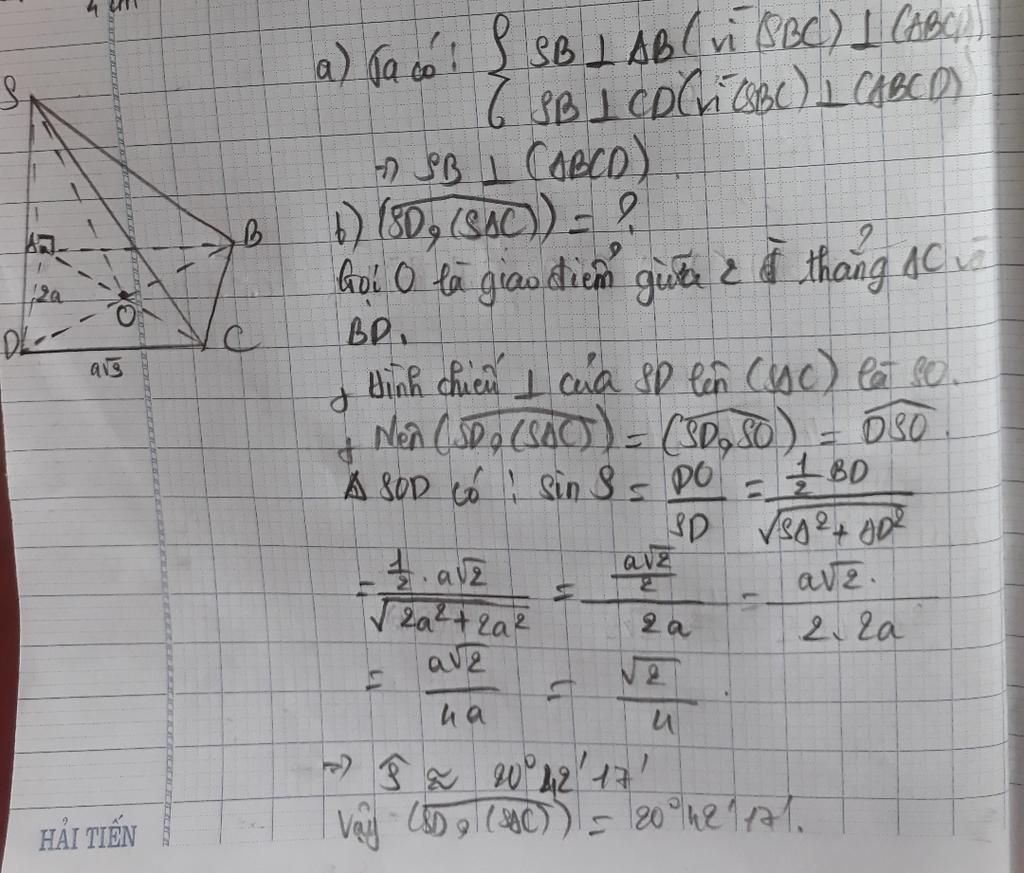 4 cm
a) Ta có: { SB ⊥ AB (vì (SBC) ⊥ (ABCD)
{ SB ⊥ CD (vì (SBC) ⊥ (ABCD)
=> SB ⊥ (ABCD)
b) (SD, (SAC)) = ?
Gọi O là giao điểm giữa 2 đ thẳng AC và
BD.
+ Hình chiếu ⊥ của SD lên (SAC) là SO.
+ Nên (SD, (SAC)) = (SD, SO) = DSO.
Δ SOD có: sin S = DO/SD = (1/2 BD)/√(SA² + AD²)
= (1/2 . a√2)/√(2a² + 2a²) = (a√2/2)/2a = a√2/(2.2a)
= a√2/4a = √2/4.
=> Ŝ ≈ 20°42'17'
Vậy (SD, (SAC)) = 20°42'17'.
S
A
B
2a
O
D
C
a√3
HẢI TIẾN